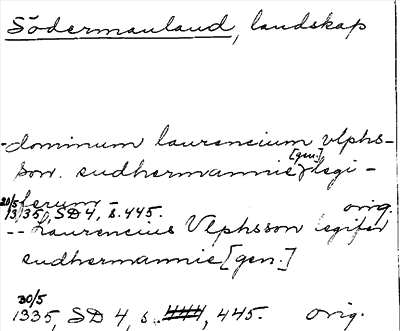 Södermanland, landskap
-dominum laurencium vlphs-
son. sudhermannie [gen.] legi-
ferum -
20/5 1335, SD 4, s. 445. orig.
-- Laurencius Vlphsson legifer
sudhermannie [gen.]
30/5
1335, SD 4, s. 444, 445. orig.